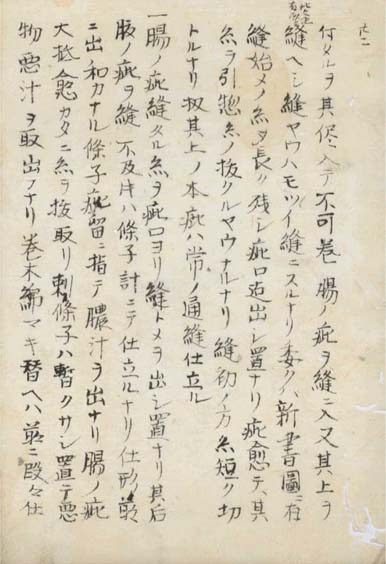 何メルヲ其侭ニ入テ不可巻腸ノ疵ヲ縫ニ入又其上ヲ
縫ヘシ縫ヤウハモツイ縫ニスルナリ委クハ新書圖ニ有
縫始メノ糸ヲ長ク残シ疵口迄出シ置ナリ疵愈テ其
糸ヲ引惣糸ノ抜クルヤウナルナリ縫初ノ方糸短ク切
トルナリ扨其上ノ本疵ハ常ノ通縫仕立ル
一腸ノ疵縫タル糸ヲ疵口ヨリ縫トメヲ出シ置ナリ其后
腹ノ疵ヲ縫不及片ハ條子計ニテ仕立ルナリ仕形ハ前
ニ出和カナル條子疵留ニ指テ膿汁ヲ出ナリ腸ノ疵
大抵愈カタニ糸ヲ抜取リ刺條子ハ暫クサシ置テ悪
物悪汁ヲ取出フナリ巻木綿マキ替ヘハ前ニ段々仕